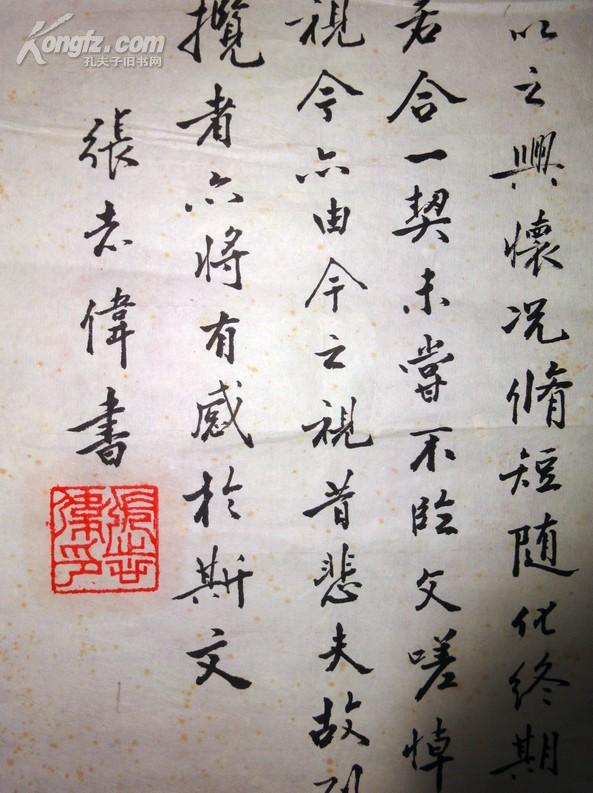 Kongfz.com
孔夫子旧书网
以之興懷况脩短随化终期
若合一契未嘗不臨文嗟悼
視今亦由今之視昔悲夫故列
攬者亦将有感於斯文
張志偉書
張志偉印